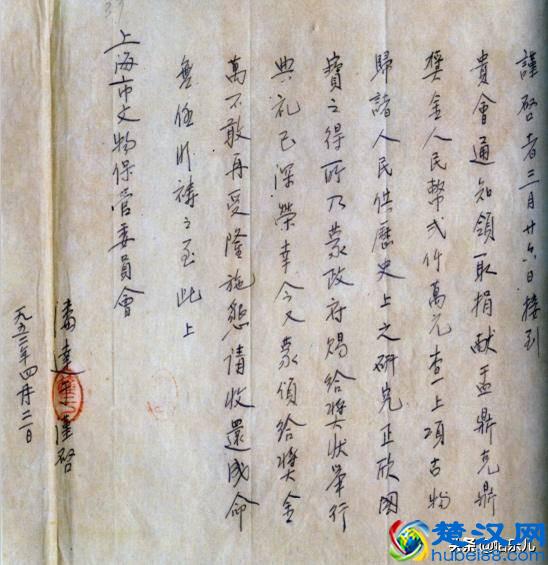 謹啓者三月廿六日接到
貴會通知領取捐献盂鼎克鼎
奬金人民幣弍仟萬元查上項古物
歸諸人民供歷史上之研究正欣國
寳之得所乃蒙政府賜给奬狀舉行
典礼已深榮幸今又蒙頒给奬金
萬不敢再受隆施懇請收還成命
無任盼禱之至此上
上海市文物保管委員會
潘達于謹啓
一九五二年四月二日
楚汉网
hubei88.com
头条@娱乐儿